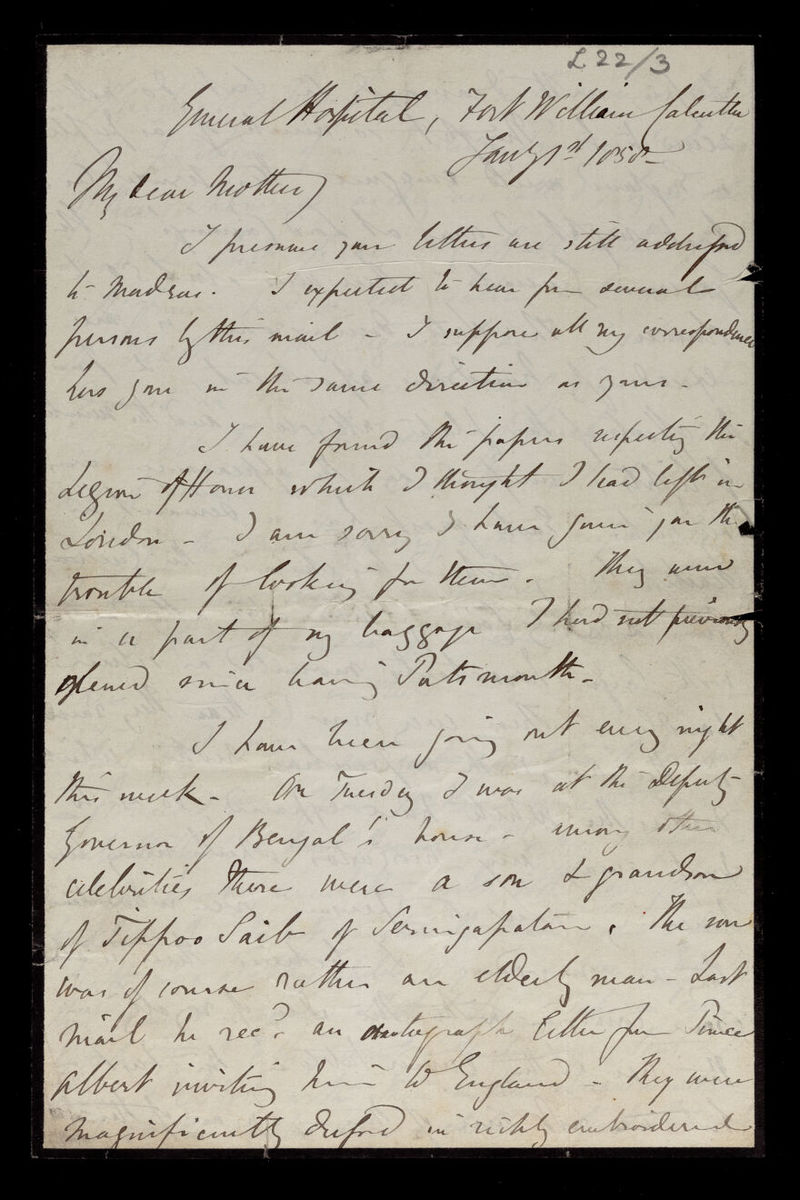 L 22/3
General Hospital, Fort William Calcutta
Jany 1st 1858
My dear Mother,
I presume your letters are still addressed
to Madras. I expected to hear from several
persons by this mail - I suppose all my correspondence
has gone in the same direction as yours -
I have found the papers respecting the
Legion of Honor which I thought I had left in
London - I am sorry I have given you the
trouble of looking for them. They were
in a part of my baggage I had not previously
opened since leaving Portsmouth -
I have been going out every night
this week - On Tuesday I was at the Deputy
Governor of Bengal's house - among other
celebrities there were a son & grandson
of Tippoo Saib of Seringapatam. The son
was of course rather an elderly man - Last
mail he recd. an autograph letter from Prince
Albert inviting him to England - They were
magnificently dressed in richly embroidered